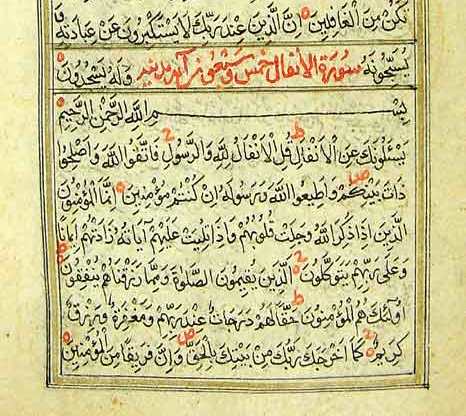 تَكُنْ مِنَ الْغَافِلِينَ اِنَّ الَّذِينَ عِنْدَ رَبِّكَ لَا يَسْتَكْبِرُونَ عَنْ عِبَادَتِهِ
يُسَبِّحُونَهُ سورة الأنفال خمس وسبعون آية مدنية وَلَهُ يَسْجُدُونَ
بِسْمِ اللَّهِ الرَّحْمٰنِ الرَّحِيمِ
يَسْئَلُونَكَ عَنِ الْاَنْفَالِ ط قُلِ الْاَنْفَالُ لِلَّهِ وَالرَّسُولِ فَاتَّقُوا اللَّهَ وَاَصْلِحُوا
ذَاتَ بَيْنِكُمْ ص وَاَطِيعُوا اللَّهَ وَرَسُولَهُ اِنْ كُنْتُمْ مُؤْمِنِينَ اِنَّمَا الْمُؤْمِنُونَ
الَّذِينَ اِذَا ذُكِرَ اللَّهُ وَجِلَتْ قُلُوبُهُمْ وَاِذَا تُلِيَتْ عَلَيْهِمْ اٰيَاتُهُ زَادَتْهُمْ اِيمَانًا
وَعَلَى رَبِّهِمْ يَتَوَكَّلُونَ الَّذِينَ يُقِيمُونَ الصَّلٰوةَ وَمِمَّا رَزَقْنَاهُمْ يُنْفِقُونَ
اُولٰئِكَ هُمُ الْمُؤْمِنُونَ حَقًّا ط لَهُمْ دَرَجَاتٌ عِنْدَ رَبِّهِمْ وَمَغْفِرَةٌ وَرِزْقٌ
كَرِيمٌ كَمَا اَخْرَجَكَ رَبُّكَ مِنْ بَيْتِكَ بِالْحَقِّ ص وَاِنَّ فَرِيقًا مِنَ الْمُؤْمِنِينَ